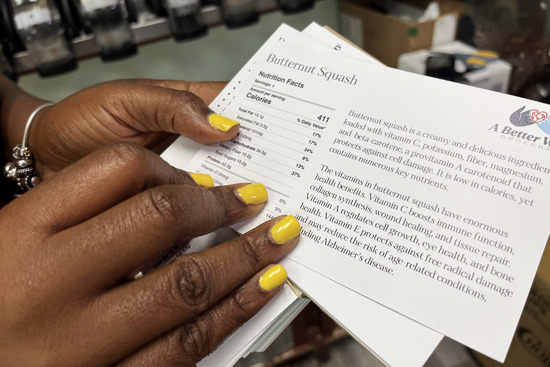 Butternut Squash
Nutrition Facts
Servings: 4
Amount per serving
Calories 411
% Daily Value*
Total Fat 13.1g 17%
Saturated Fat 17%
24%
37%
Butternut squash is a creamy and delicious ingredient
loaded with vitamin C, potassium, fiber, magnesium,
and beta carotene, a provitamin A carotenoid that
protects against cell damage. It is low in calories, yet
contains numerous key nutrients.
The vitamins in butternut squash have enormous
health benefits. Vitamin C boosts immune function,
collagen synthesis, wound healing, and tissue repair.
Vitamin A regulates cell growth, eye health, and bone
health. Vitamin E protects against free radical damage
and may reduce the risk of age-related conditions,
including Alzheimer's disease.
A Better W